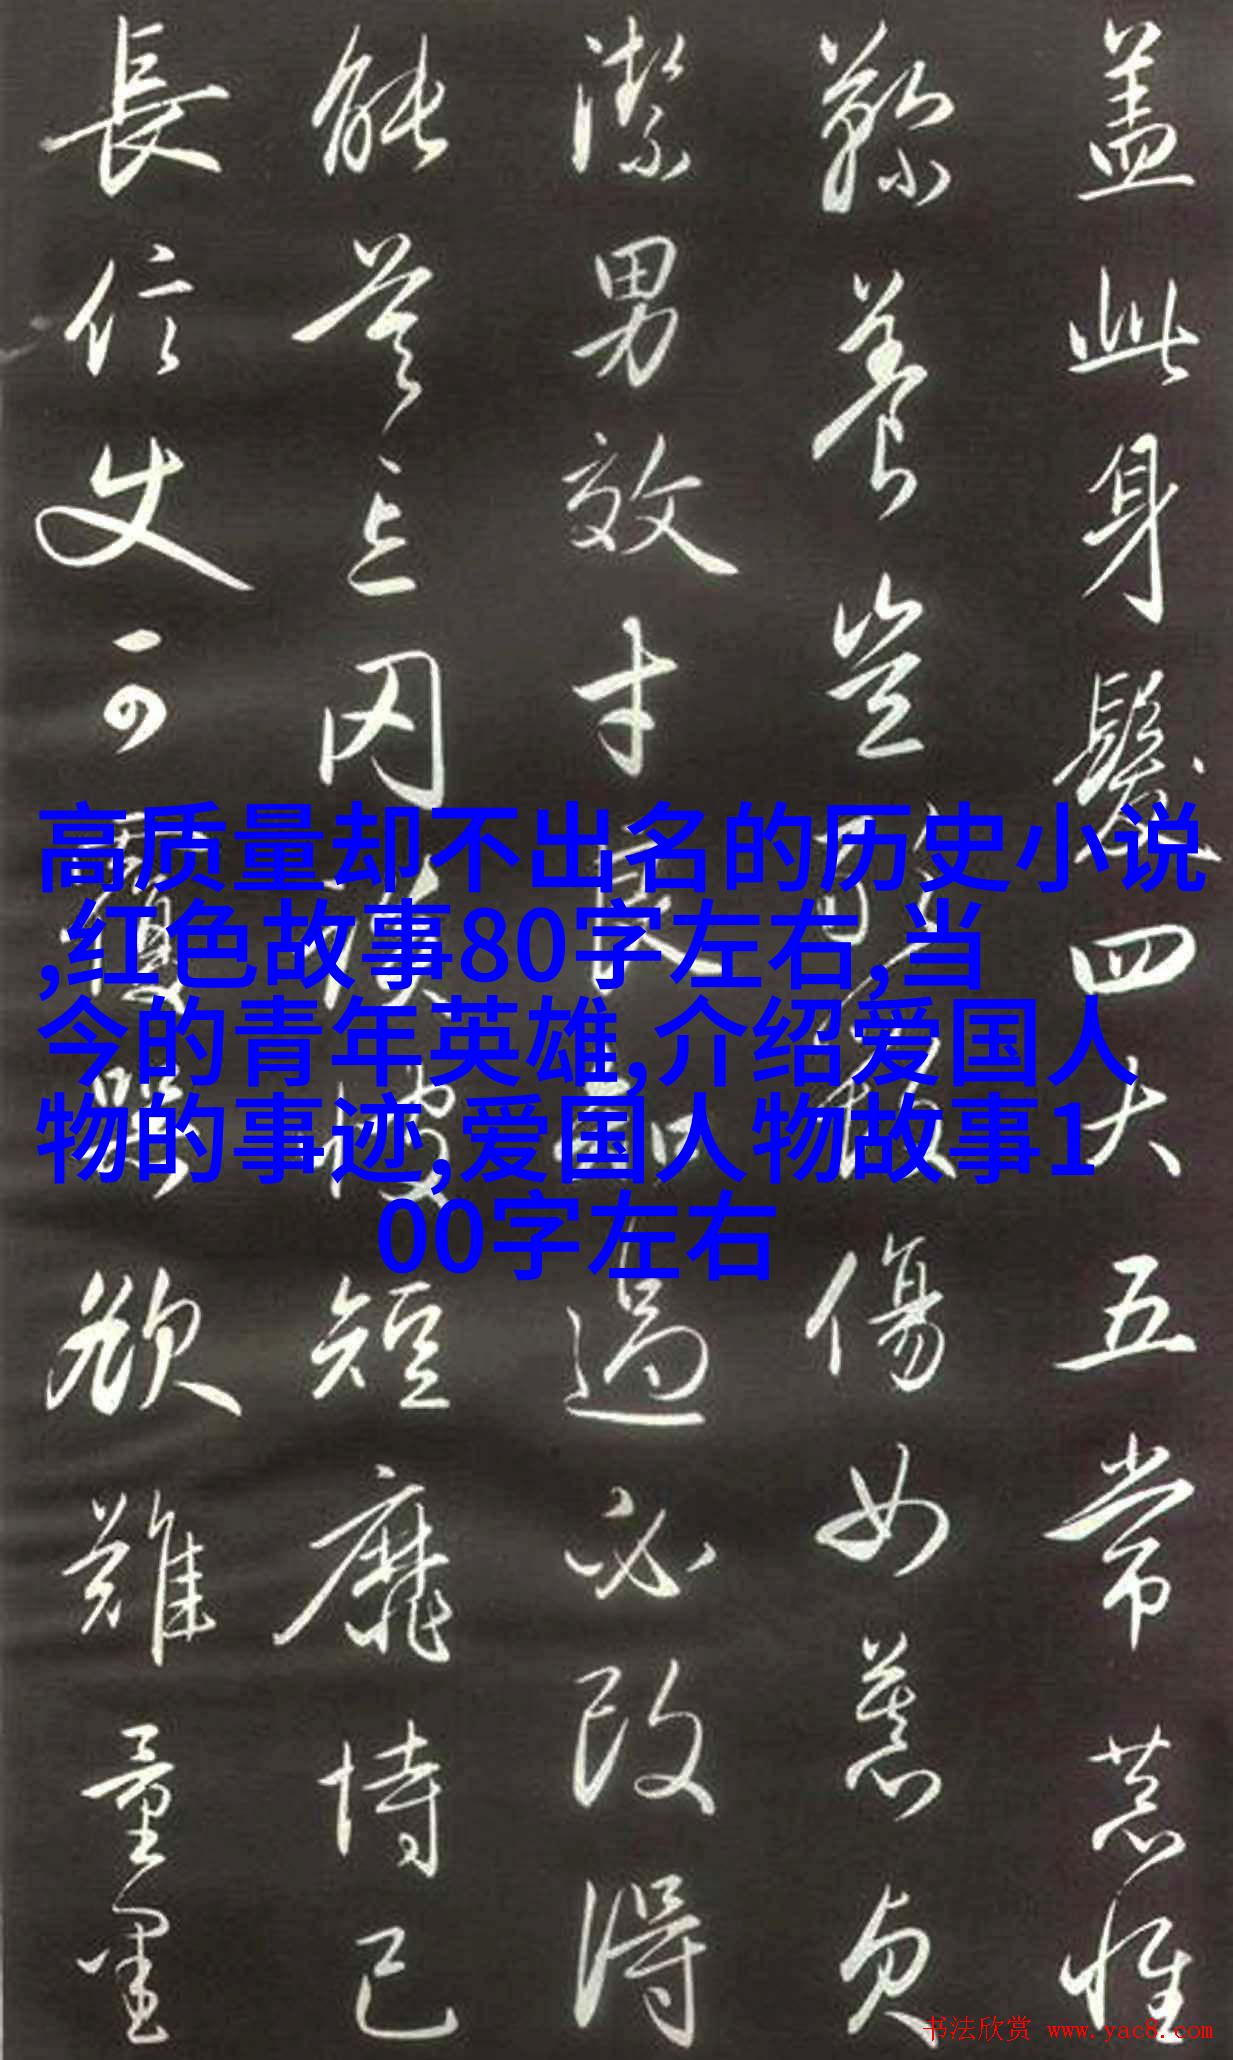 盖此身髮四大五常恭惟
鞠養豈敢毀傷女慕貞
潔男效才良知過必改得
能莫忘罔談彼短靡恃己
長信使可覆器欲難量墨
高质量却不出名的历史小说
,红色故事80字左右,当
今的青年英雄,介绍爱国人
物的事迹,爱国人物故事1
00字左右
书法欣赏 www.yac8.com